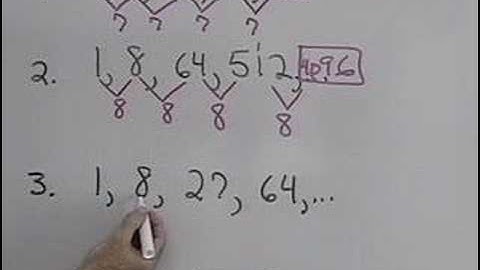 7 7 7 7
2. 1, 8, 64, 512, 4096
8 8 8 8
3. 1, 8, 27, 64, ...